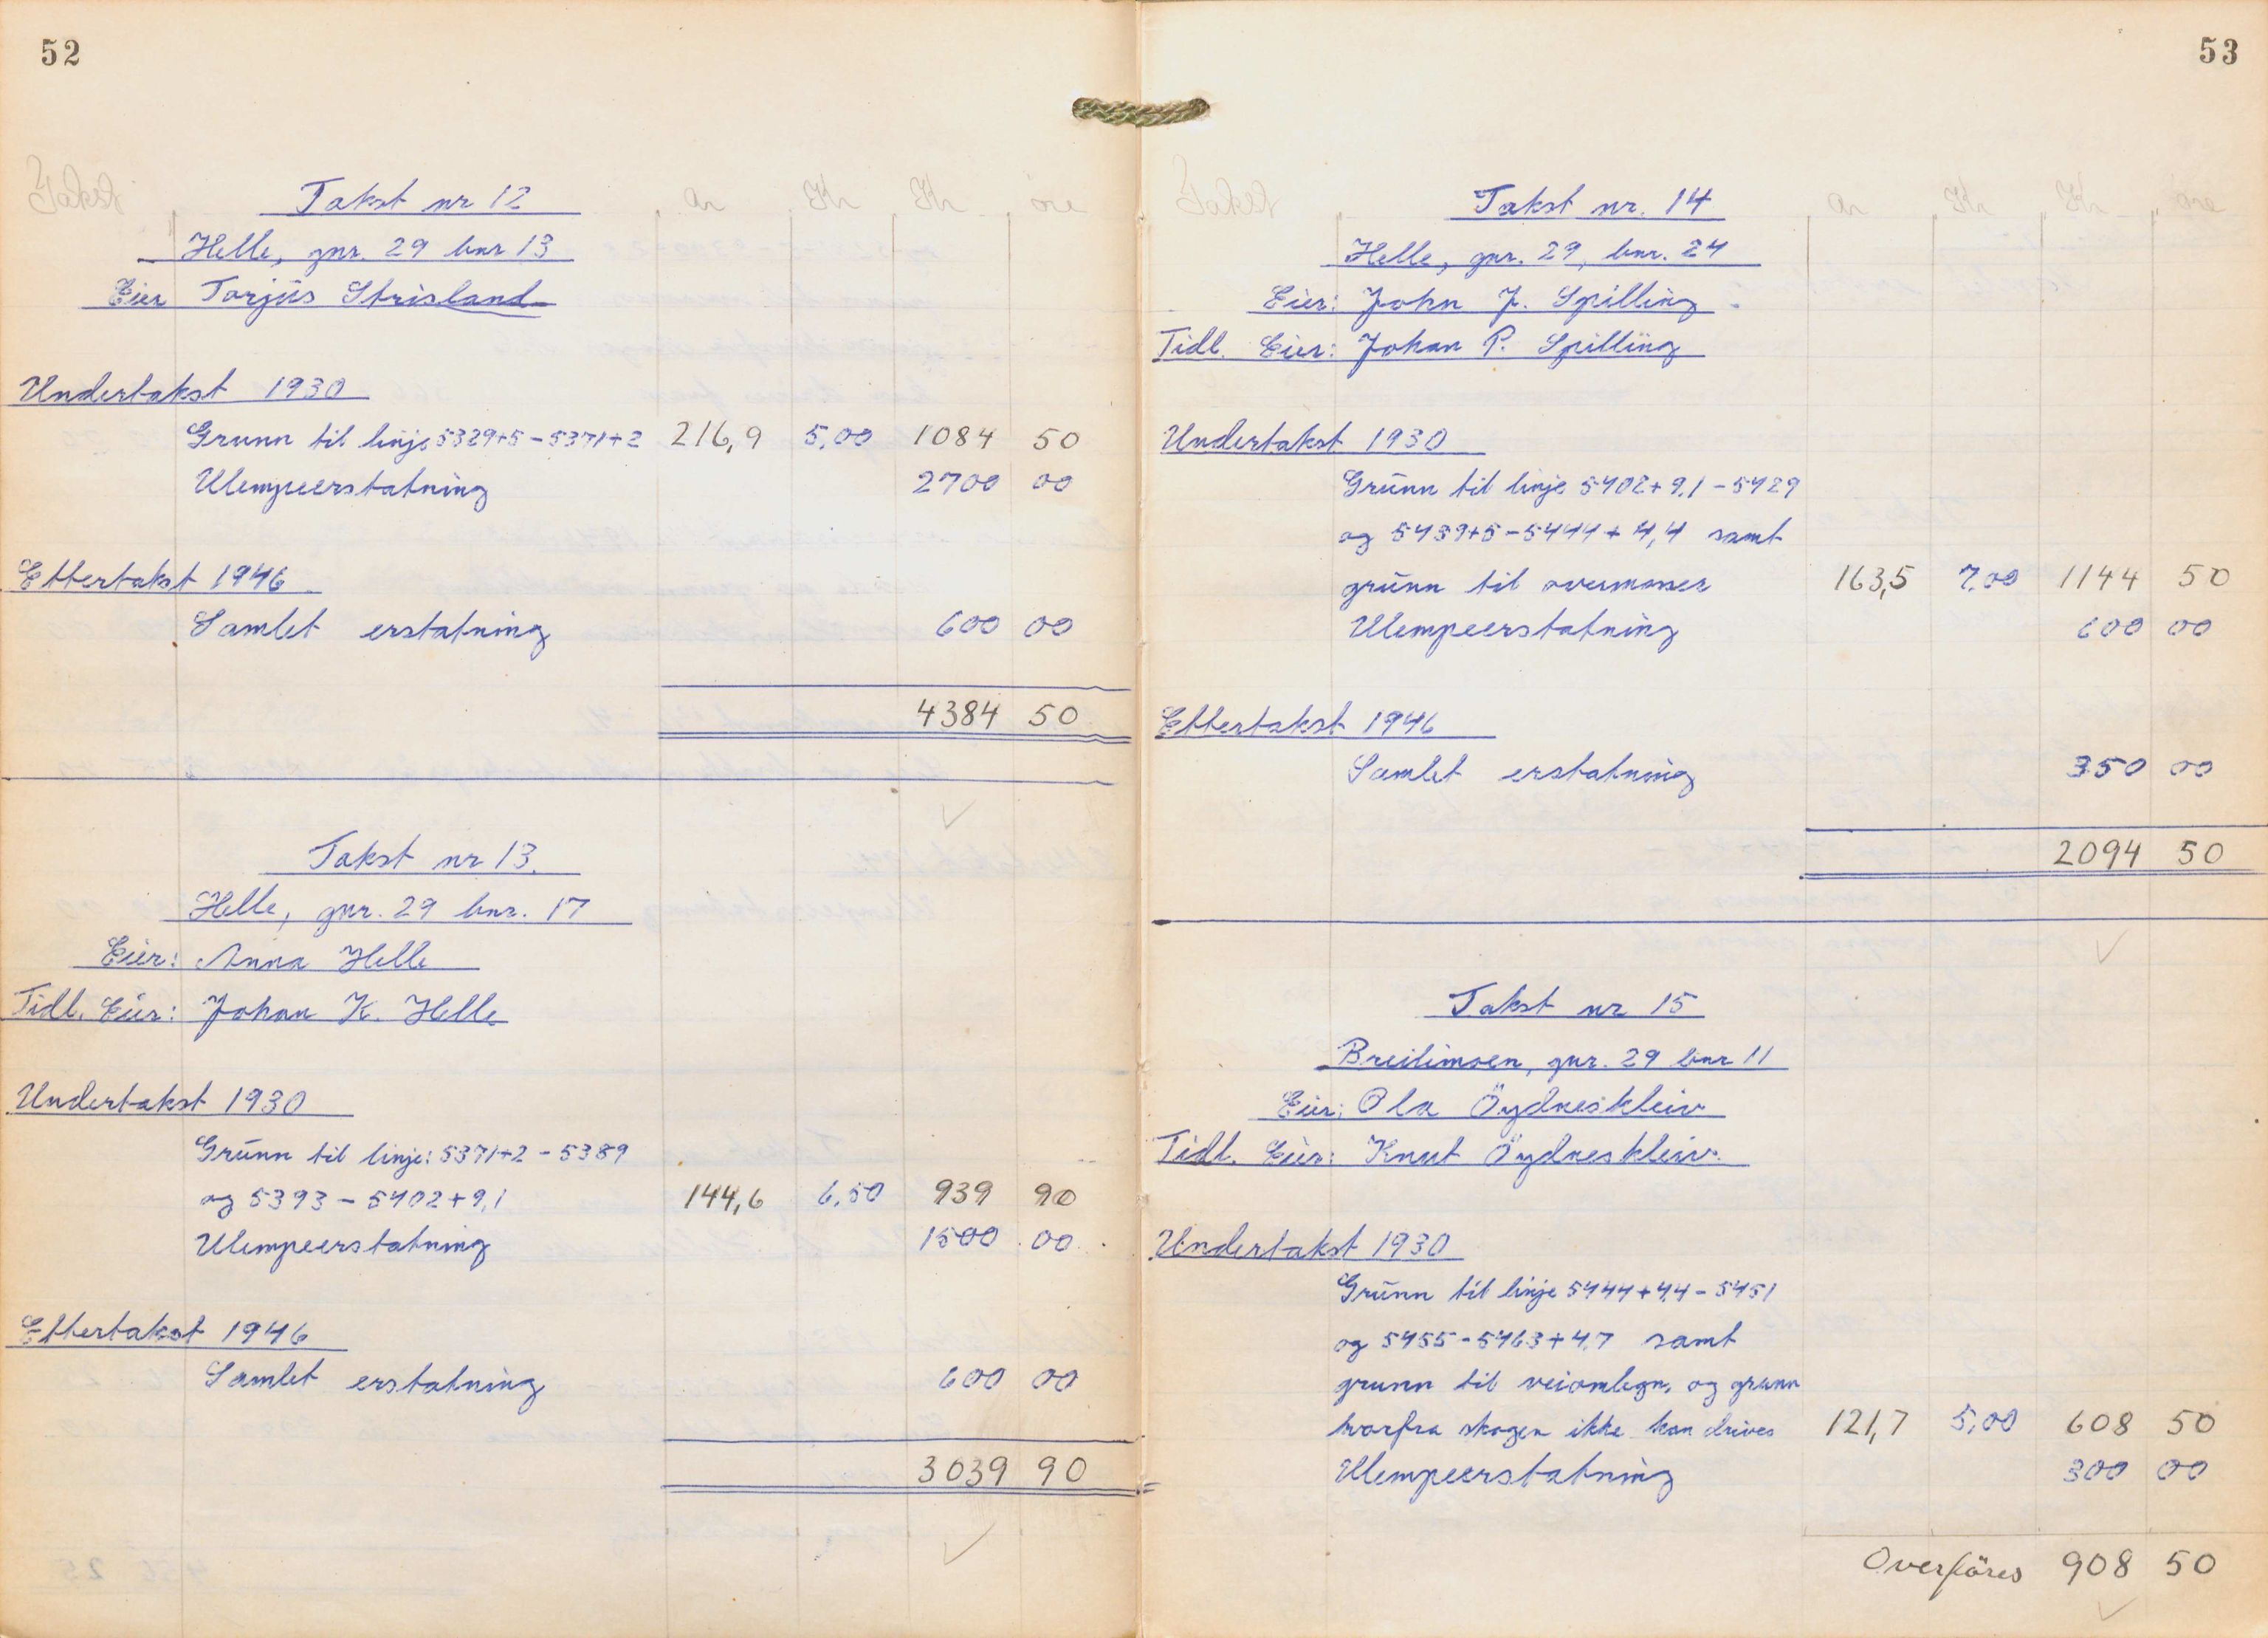 52
Takst ar Kr Kr øre
Takst nr 12
Helle, gnr. 29 bnr 13
Eier Torjus Strisland
Undertakst 1930
Grunn til linje 5329+5-5371+2 216,9 5,00 1084 50
Ulempeerstatning 2700 00
Ettertakst 1946
Samlet erstatning 600 00
4384 50
Takst nr 13.
Helle, gnr. 29 bnr. 17
Eier: Anna Helle
Tidl. Eier: Johan K. Helle
Undertakst 1930
Grunn til linje: 5371+2 - 5389
og 5393 - 5402+9,1 144,6 6,50 939 90
Ulempeerstatning 1500 00
Ettertakst 1946
Samlet erstatning 600 00
3039 90
53
Takst ar Kr Kr øre
Takst nr. 14
Helle, gnr. 29, bnr. 24
Eier: John J. Spilling
Tidl. Eier: Johan P. Spilling
Undertakst 1930
Grunn til linje 5402+9,1 - 5429
og 5439+5-5444+4,4 samt
grunn til overmasser 163,5 7,00 1144 50
Ulempeerstatning 600 00
Ettertakst 1946
Samlet erstatning 350 00
2094 50
Takst nr 15
Breilimoen, gnr. 29 bnr 11
Eier: Ola Öydneskleiv
Tidl. Eier: Knut Öydneskleiv.
Undertakst 1930
Grunn til linje 5444+4,4 - 5451
og 5455-5463+4,7 samt
grunn til veiomlegn. og grunn
hvorfra skogen ikke kan drives 121,7 5,00 608 50
Ulempeerstatning 300 00
Overföres 908 50